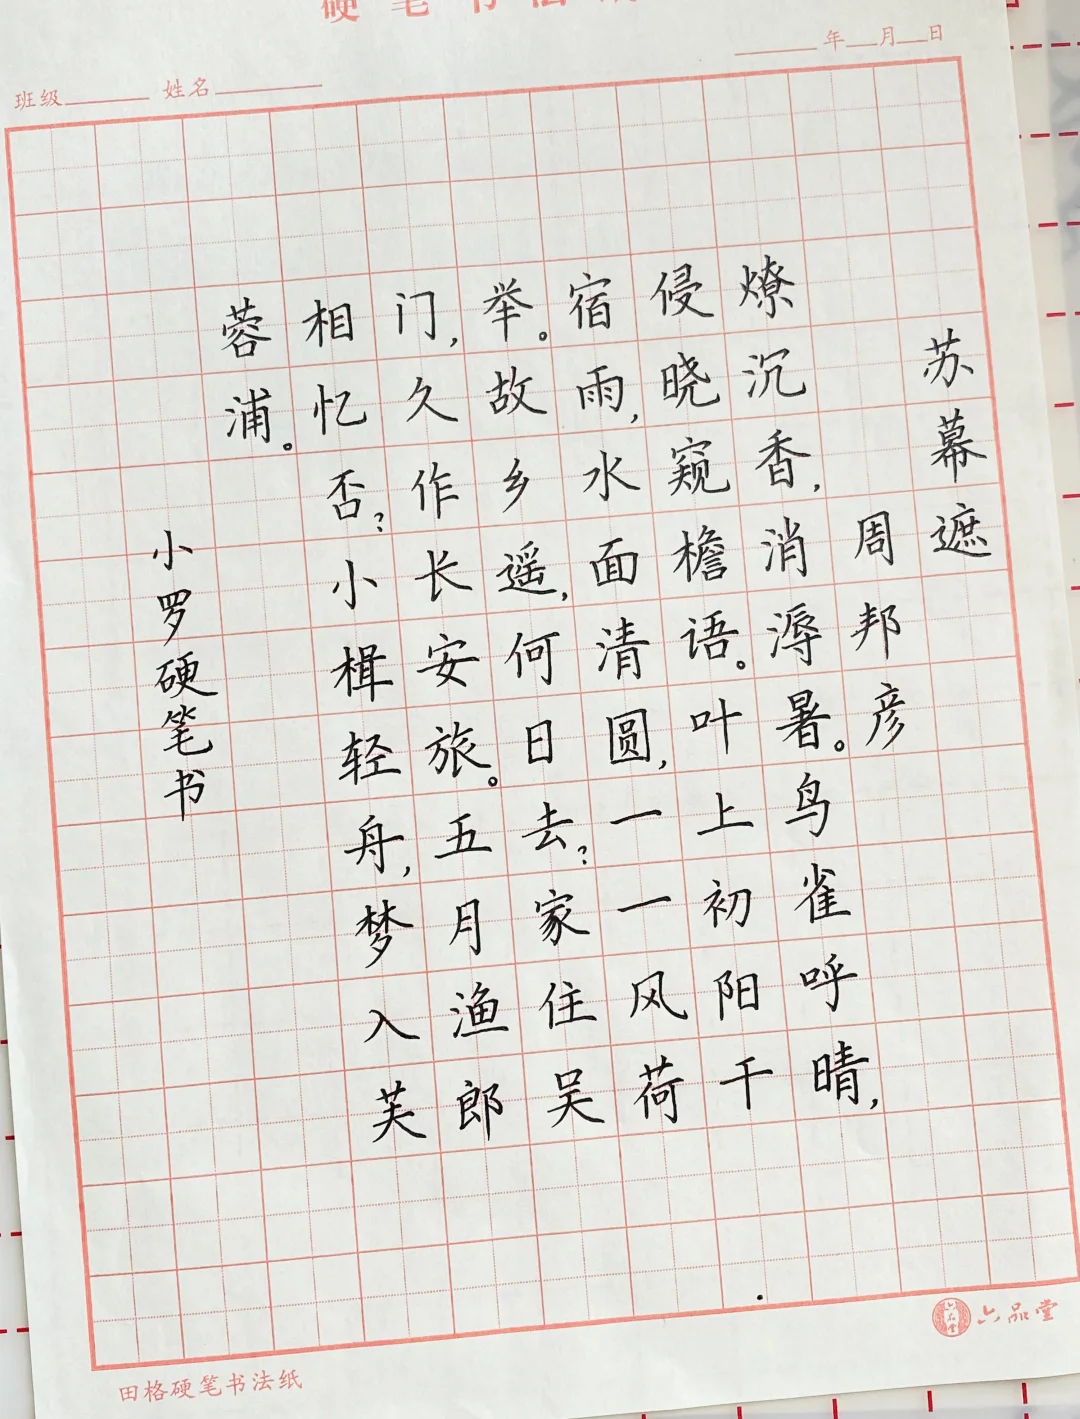 年 月 日
班级 姓名
苏幕遮
周邦彦
燎沉香,消溽暑。鸟雀呼晴,
侵晓窥檐语。叶上初阳干
宿雨,水面清圆,一一风荷
举。故乡遥,何日去?家住吴
门,久作长安旅。五月渔郎
相忆否?小楫轻舟,梦入芙
蓉浦。
小罗硬笔书
六品堂
田格硬笔书法纸